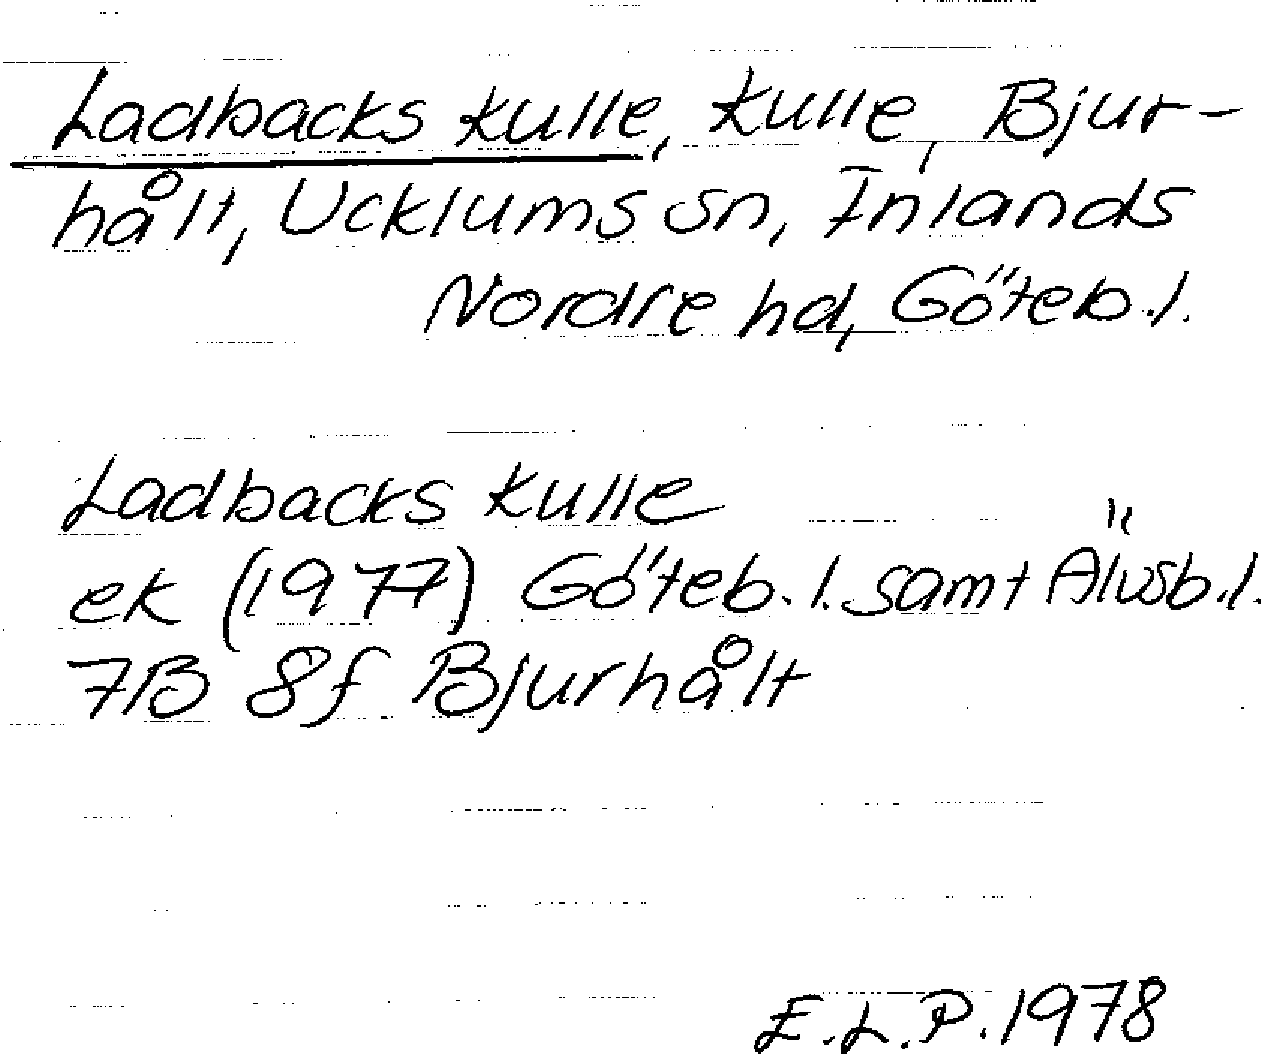 Ladbacks kulle, kulle, Bjur-
hålt, Ucklums sn, Inlands
Nordre hd, Göteb.l.
Ladbacks kulle
ek (1977) Göteb.l. samt Älvsb.l.
7B 8f Bjurhålt
E.L.P. 1978